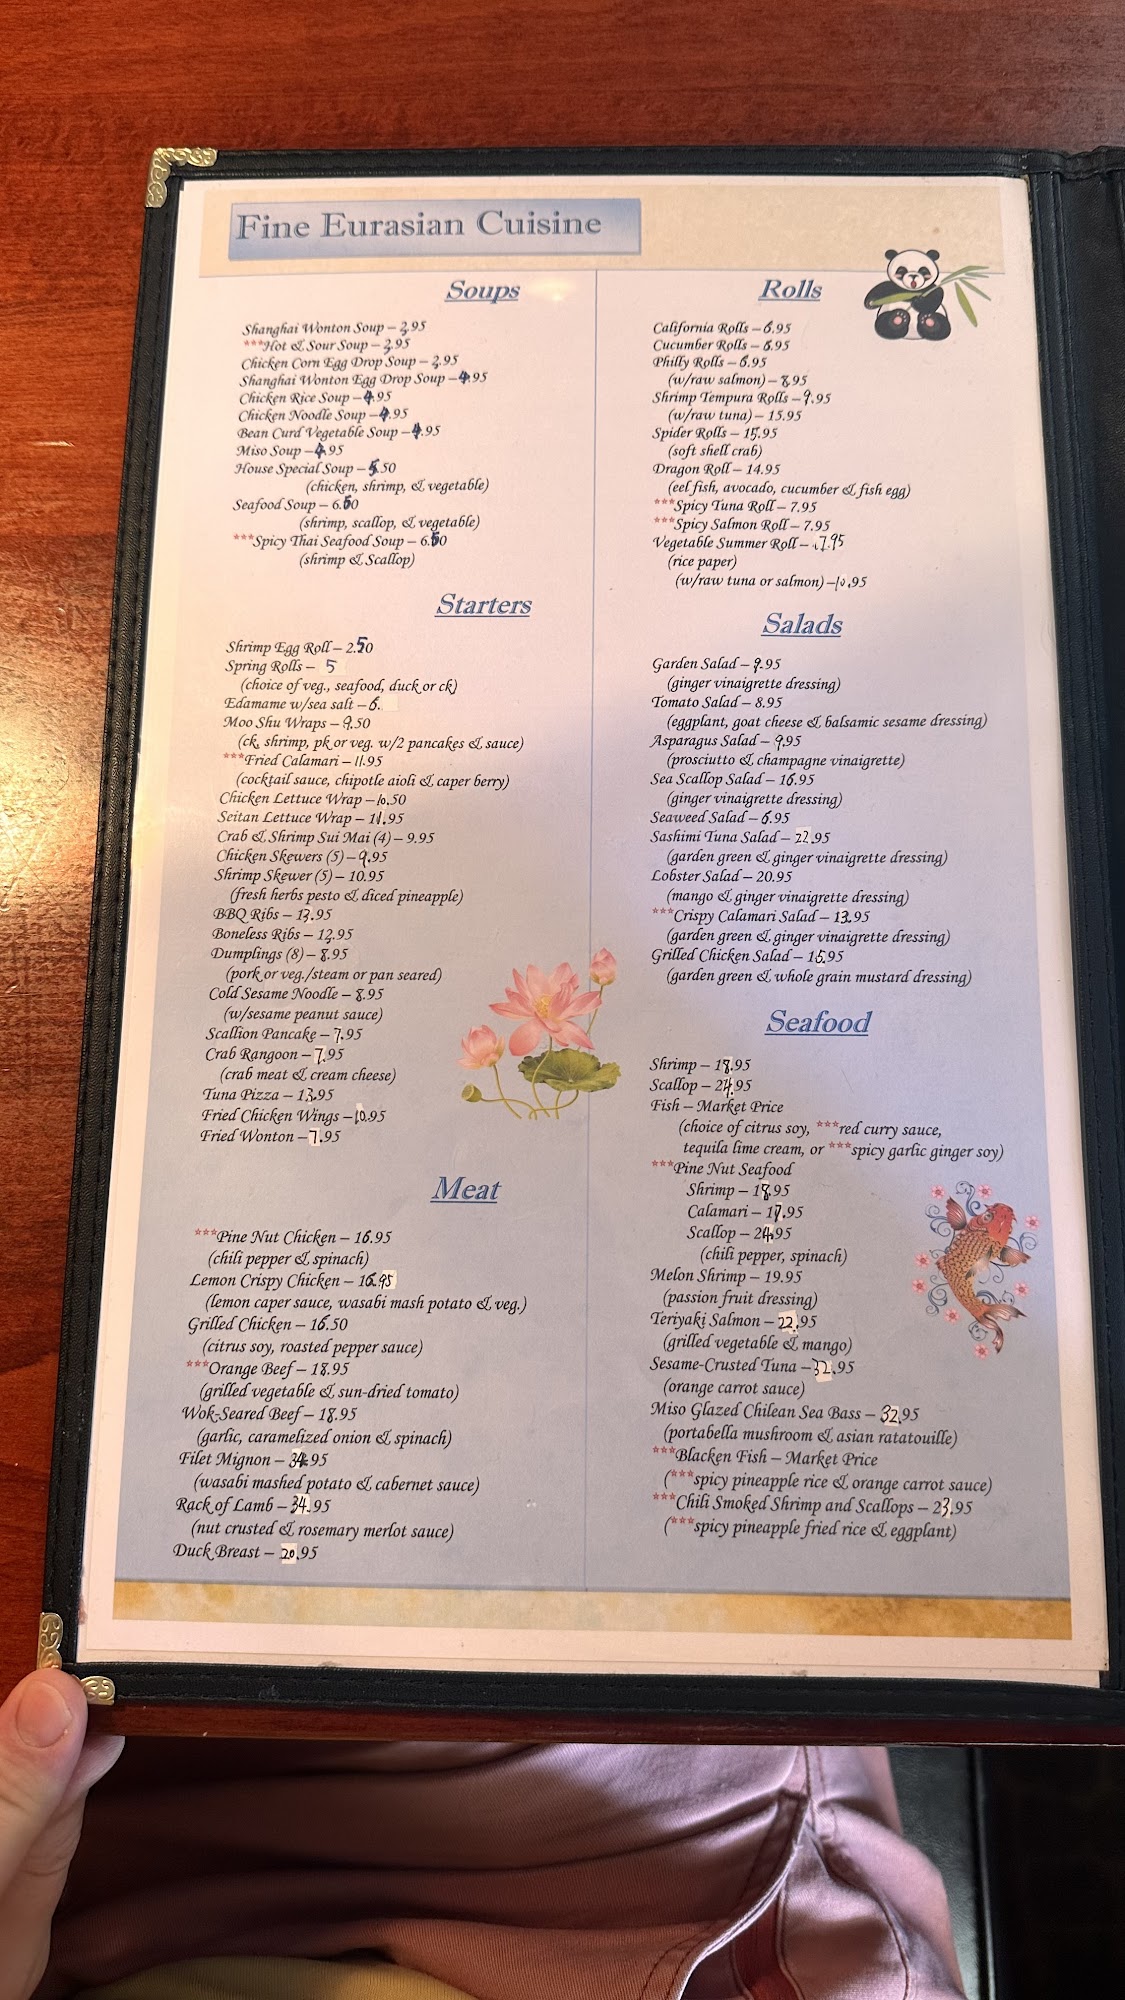 Fine Eurasian Cuisine
Soups
Shanghai Wonton Soup – 3.95
***Hot & Sour Soup – 3.95
Chicken Corn Egg Drop Soup – 3.95
Shanghai Wonton Egg Drop Soup – 4.95
Chicken Rice Soup – 4.95
Chicken Noodle Soup – 4.95
Bean Curd Vegetable Soup – 4.95
Miso Soup – 4.95
House Special Soup – 5.50
(chicken, shrimp, & vegetable)
Seafood Soup – 6.50
(shrimp, scallop, & vegetable)
***Spicy Thai Seafood Soup – 6.50
(shrimp & Scallop)
Starters
Shrimp Egg Roll – 2.50
Spring Rolls – 5
(choice of veg., seafood, duck or ck)
Edamame w/sea salt – 6.
Moo Shu Wraps – 9.50
(ck, shrimp, pk or veg. w/2 pancakes & sauce)
***Fried Calamari – 11.95
(cocktail sauce, chipotle aioli & caper berry)
Chicken Lettuce Wrap – 10.50
Seitan Lettuce Wrap – 11.95
Crab & Shrimp Sui Mai (4) – 9.95
Chicken Skewers (5) – 9.95
Shrimp Skewer (5) – 10.95
(fresh herbs pesto & diced pineapple)
BBQ Ribs – 13.95
Boneless Ribs – 12.95
Dumplings (8) – 8.95
(pork or veg./steam or pan seared)
Cold Sesame Noodle – 8.95
(w/sesame peanut sauce)
Scallion Pancake – 7.95
Crab Rangoon – 7.95
(crab meat & cream cheese)
Tuna Pizza – 13.95
Fried Chicken Wings – 10.95
Fried Wonton – 7.95
Meat
***Pine Nut Chicken – 16.95
(chili pepper & spinach)
Lemon Crispy Chicken – 16.95
(lemon caper sauce, wasabi mash potato & veg.)
Grilled Chicken – 16.50
(citrus soy, roasted pepper sauce)
***Orange Beef – 18.95
(grilled vegetable & sun-dried tomato)
Wok-Seared Beef – 18.95
(garlic, caramelized onion & spinach)
Filet Mignon – 34.95
(wasabi mashed potato & cabernet sauce)
Rack of Lamb – 34.95
(nut crusted & rosemary merlot sauce)
Duck Breast – 20.95
Rolls
California Rolls – 6.95
Cucumber Rolls – 6.95
Philly Rolls – 6.95
(w/raw salmon) – 8.95
Shrimp Tempura Rolls – 9.95
(w/raw tuna) – 15.95
Spider Rolls – 15.95
(soft shell crab)
Dragon Roll – 14.95
(eel fish, avocado, cucumber & fish egg)
***Spicy Tuna Roll – 7.95
***Spicy Salmon Roll – 7.95
Vegetable Summer Roll – 7.95
(rice paper)
(w/raw tuna or salmon) – 10.95
Salads
Garden Salad – 9.95
(ginger vinaigrette dressing)
Tomato Salad – 8.95
(eggplant, goat cheese & balsamic sesame dressing)
Asparagus Salad – 9.95
(prosciutto & champagne vinaigrette)
Sea Scallop Salad – 16.95
(ginger vinaigrette dressing)
Seaweed Salad – 6.95
Sashimi Tuna Salad – 22.95
(garden green & ginger vinaigrette dressing)
Lobster Salad – 20.95
(mango & ginger vinaigrette dressing)
***Crispy Calamari Salad – 13.95
(garden green & ginger vinaigrette dressing)
Grilled Chicken Salad – 15.95
(garden green & whole grain mustard dressing)
Seafood
Shrimp – 18.95
Scallop – 24.95
Fish – Market Price
(choice of citrus soy, ***red curry sauce,
tequila lime cream, or ***spicy garlic ginger soy)
***Pine Nut Seafood
Shrimp – 18.95
Calamari – 17.95
Scallop – 24.95
(chili pepper, spinach)
Melon Shrimp – 19.95
(passion fruit dressing)
Teriyaki Salmon – 22.95
(grilled vegetable & mango)
Sesame-Crusted Tuna – 32.95
(orange carrot sauce)
Miso Glazed Chilean Sea Bass – 32.95
(portabella mushroom & asian ratatouille)
***Blacken Fish – Market Price
(***spicy pineapple rice & orange carrot sauce)
***Chili Smoked Shrimp and Scallops – 23.95
(***spicy pineapple fried rice & eggplant)